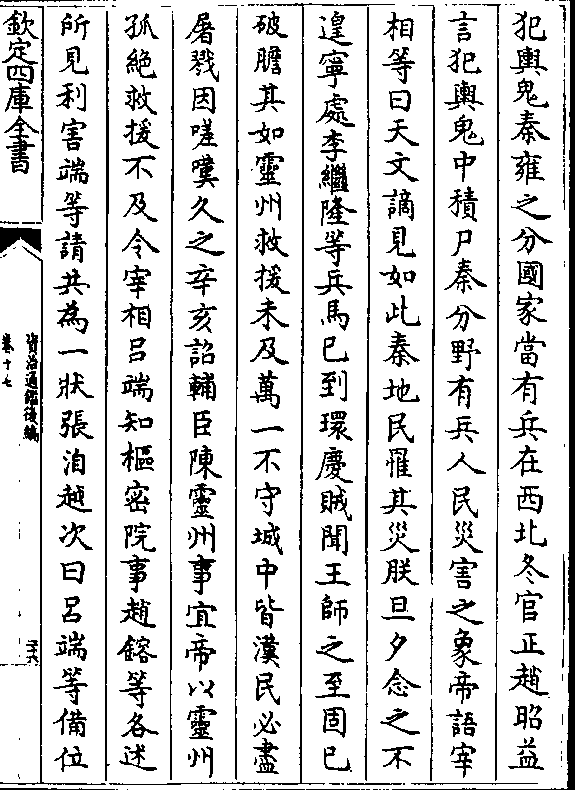 犯輿鬼秦雍之分國家當有兵在西北冬官正趙昭益
言犯輿鬼中積尸秦分野有兵人民災害之象帝語宰
相等曰天文謫見如此秦地民罹其災朕旦夕念之不
遑寧處李繼隆等兵馬已到環慶賊聞王師之至固已
破膽其如靈州救援未及萬一不守城中皆漢民必盡
屠戮因嗟嘆久之辛亥詔輔臣陳靈州事宜帝以靈州
孤絶救援不及令宰相吕端知樞密院事趙鎔等各述
所見利害端等請共為一狀張洎越次曰吕端等備位
欽定四庫全書
資治通鑑後編
卷十七